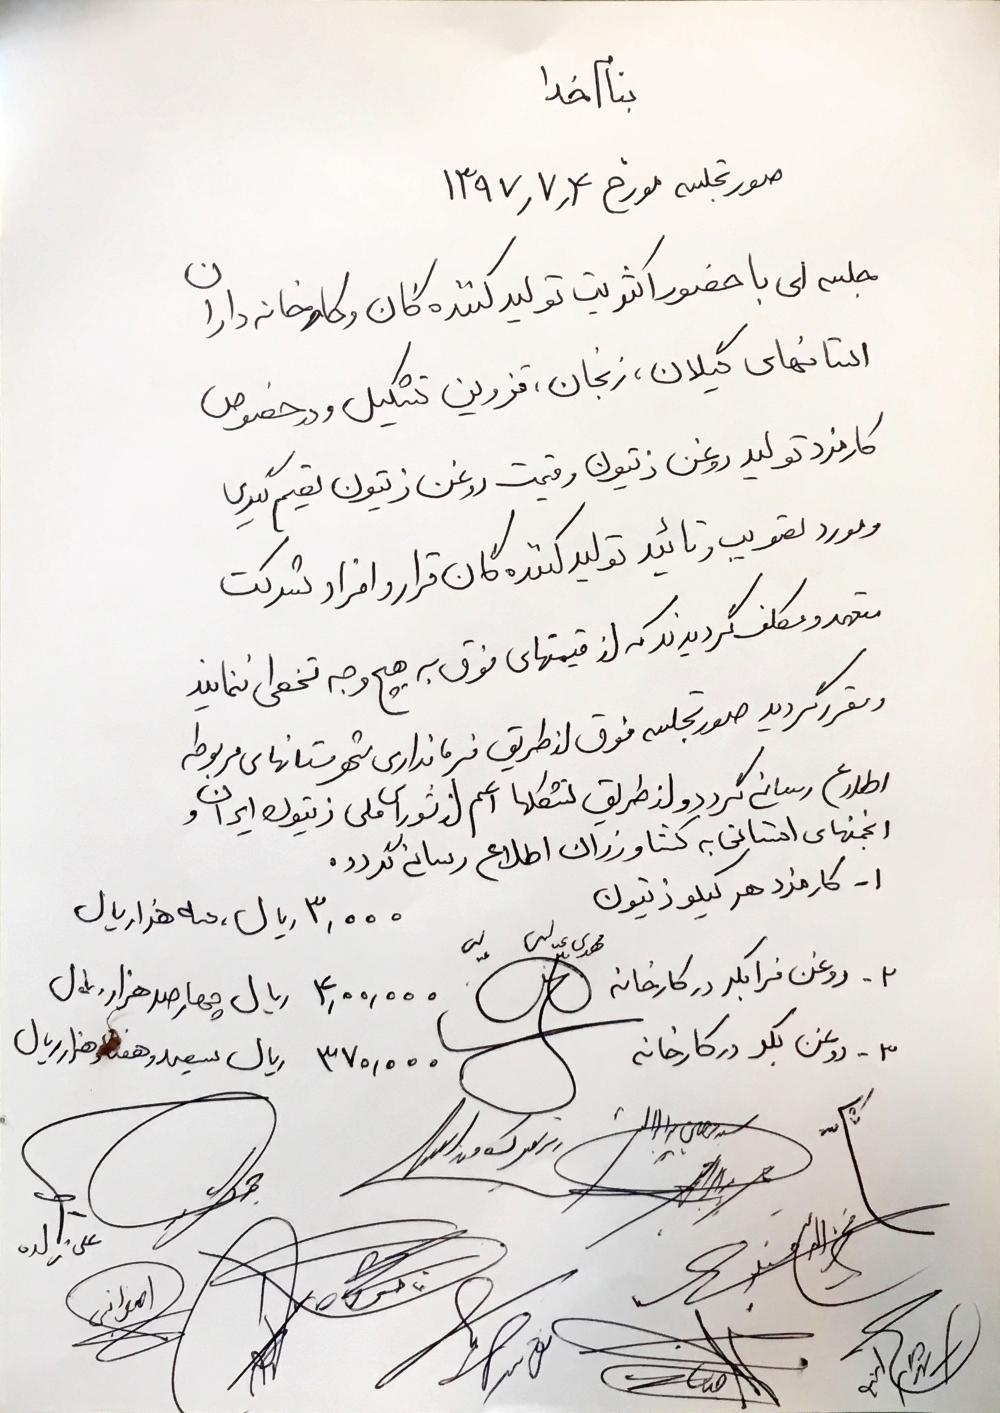 بنام خدا
صورتجلسه مورخ ۱۳۹۷٫۷٫۴
جلسه ای با حضور اکثریت تولید کننده گان و کارخانه داران
استانهای گیلان، زنجان، قزوین تشکیل و در خصوص
کارمزد تولید روغن زیتون و قیمت روغن زیتون تصمیم گیری
و مورد تصویب و تائید تولید کننده گان قرار و افراد شرکت
متعهد و مکلف گردیدند که از قیمتهای فوق به هیچ وجه تخطی ننمایند
و مقرر گردید صورتجلسه فوق از طریق فرمانداری شهرستانهای مربوطه
اطلاع رسانی گردد و از طریق تشکلها اعم از شورای ملی زیتون ایران و
انجمنهای استانی به کشاورزان اطلاع رسانی گردد.
۱- کارمزد هر کیلو زیتون ۳٫۰۰۰ ریال، سه هزار ریال
۲- روغن فرابکر در کارخانه ۴٫۰۰٫۰۰۰ ریال چهارصد هزار ریال
۳- روغن بکر در کارخانه ۳۷۰٫۰۰۰ ریال سیصد و هفتاد هزار ریال